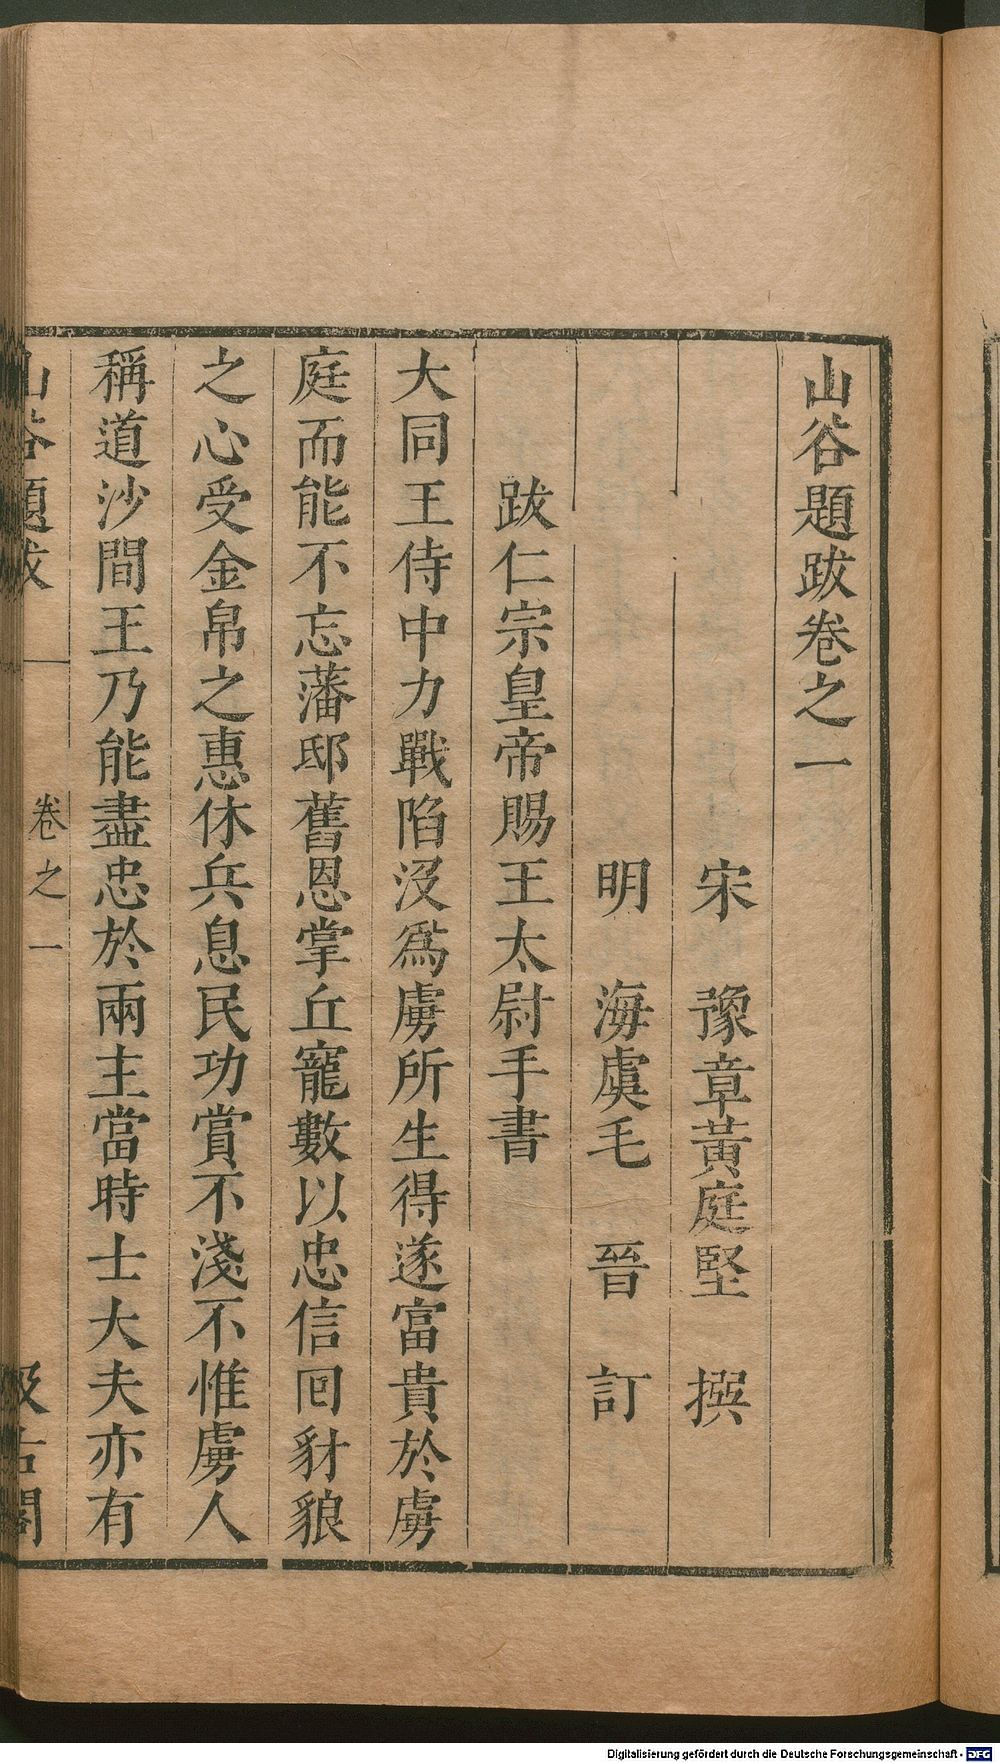 山谷題跋卷之一
宋　豫章黃庭堅　撰
明　海虞毛　晉　訂
跋仁宗皇帝賜王太尉手書
大同王侍中力戰陷沒爲虜所生得遂富貴於虜
庭而能不忘藩邸舊恩掌丘寵數以忠信回豺狼
之心受金帛之惠休兵息民功賞不淺不惟虜人
稱道沙間王乃能盡忠於兩主當時士大夫亦有
山谷題跋　卷之一　汲古閣
Digitalisierung gefördert durch die Deutsche Forschungsgemeinschaft - DFG